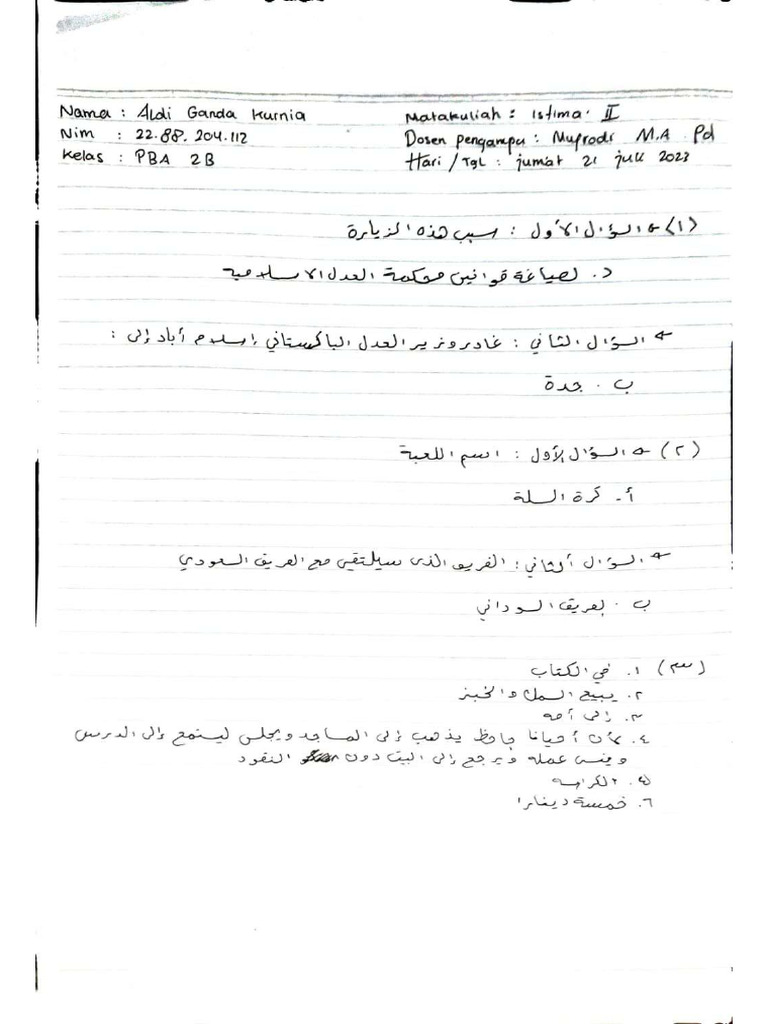 Nama : Aldi Ganda Kurnia
Nim : 22.88.204.112
Kelas : PBA 2B
Matakuliah : Istima' II
Dosen pengampu : Mufrodi M.A Pd
Hari / Tgl : jumat 21 juli 2023
(١) السؤال الأول : سبب هذه الزيارة
د. لصياغة قوانين محكمة العدل الاسلامية
السؤال الثاني : غادر وزير العدل الباكستاني إسلام أباد إلى :
ب . جدة
(٢) السؤال الأول : اسم اللعبة
أ- كرة السلة
السؤال الثاني : الفريق الذى سيلتقي مع الفريق السعودي
ب . لفريق السوداني
(٣) ١. في الكتاب
٢. يبيع السمك والخبز
٣. إلى أمه
٤. كأن أحيانا جاحظ يذهب إلى المساجد ويجلس ليستمع إلى الدرس
وينس عمله ويرجع إلى البيت دون النقود
٥. الكراسه
٦. خمسة دينارا